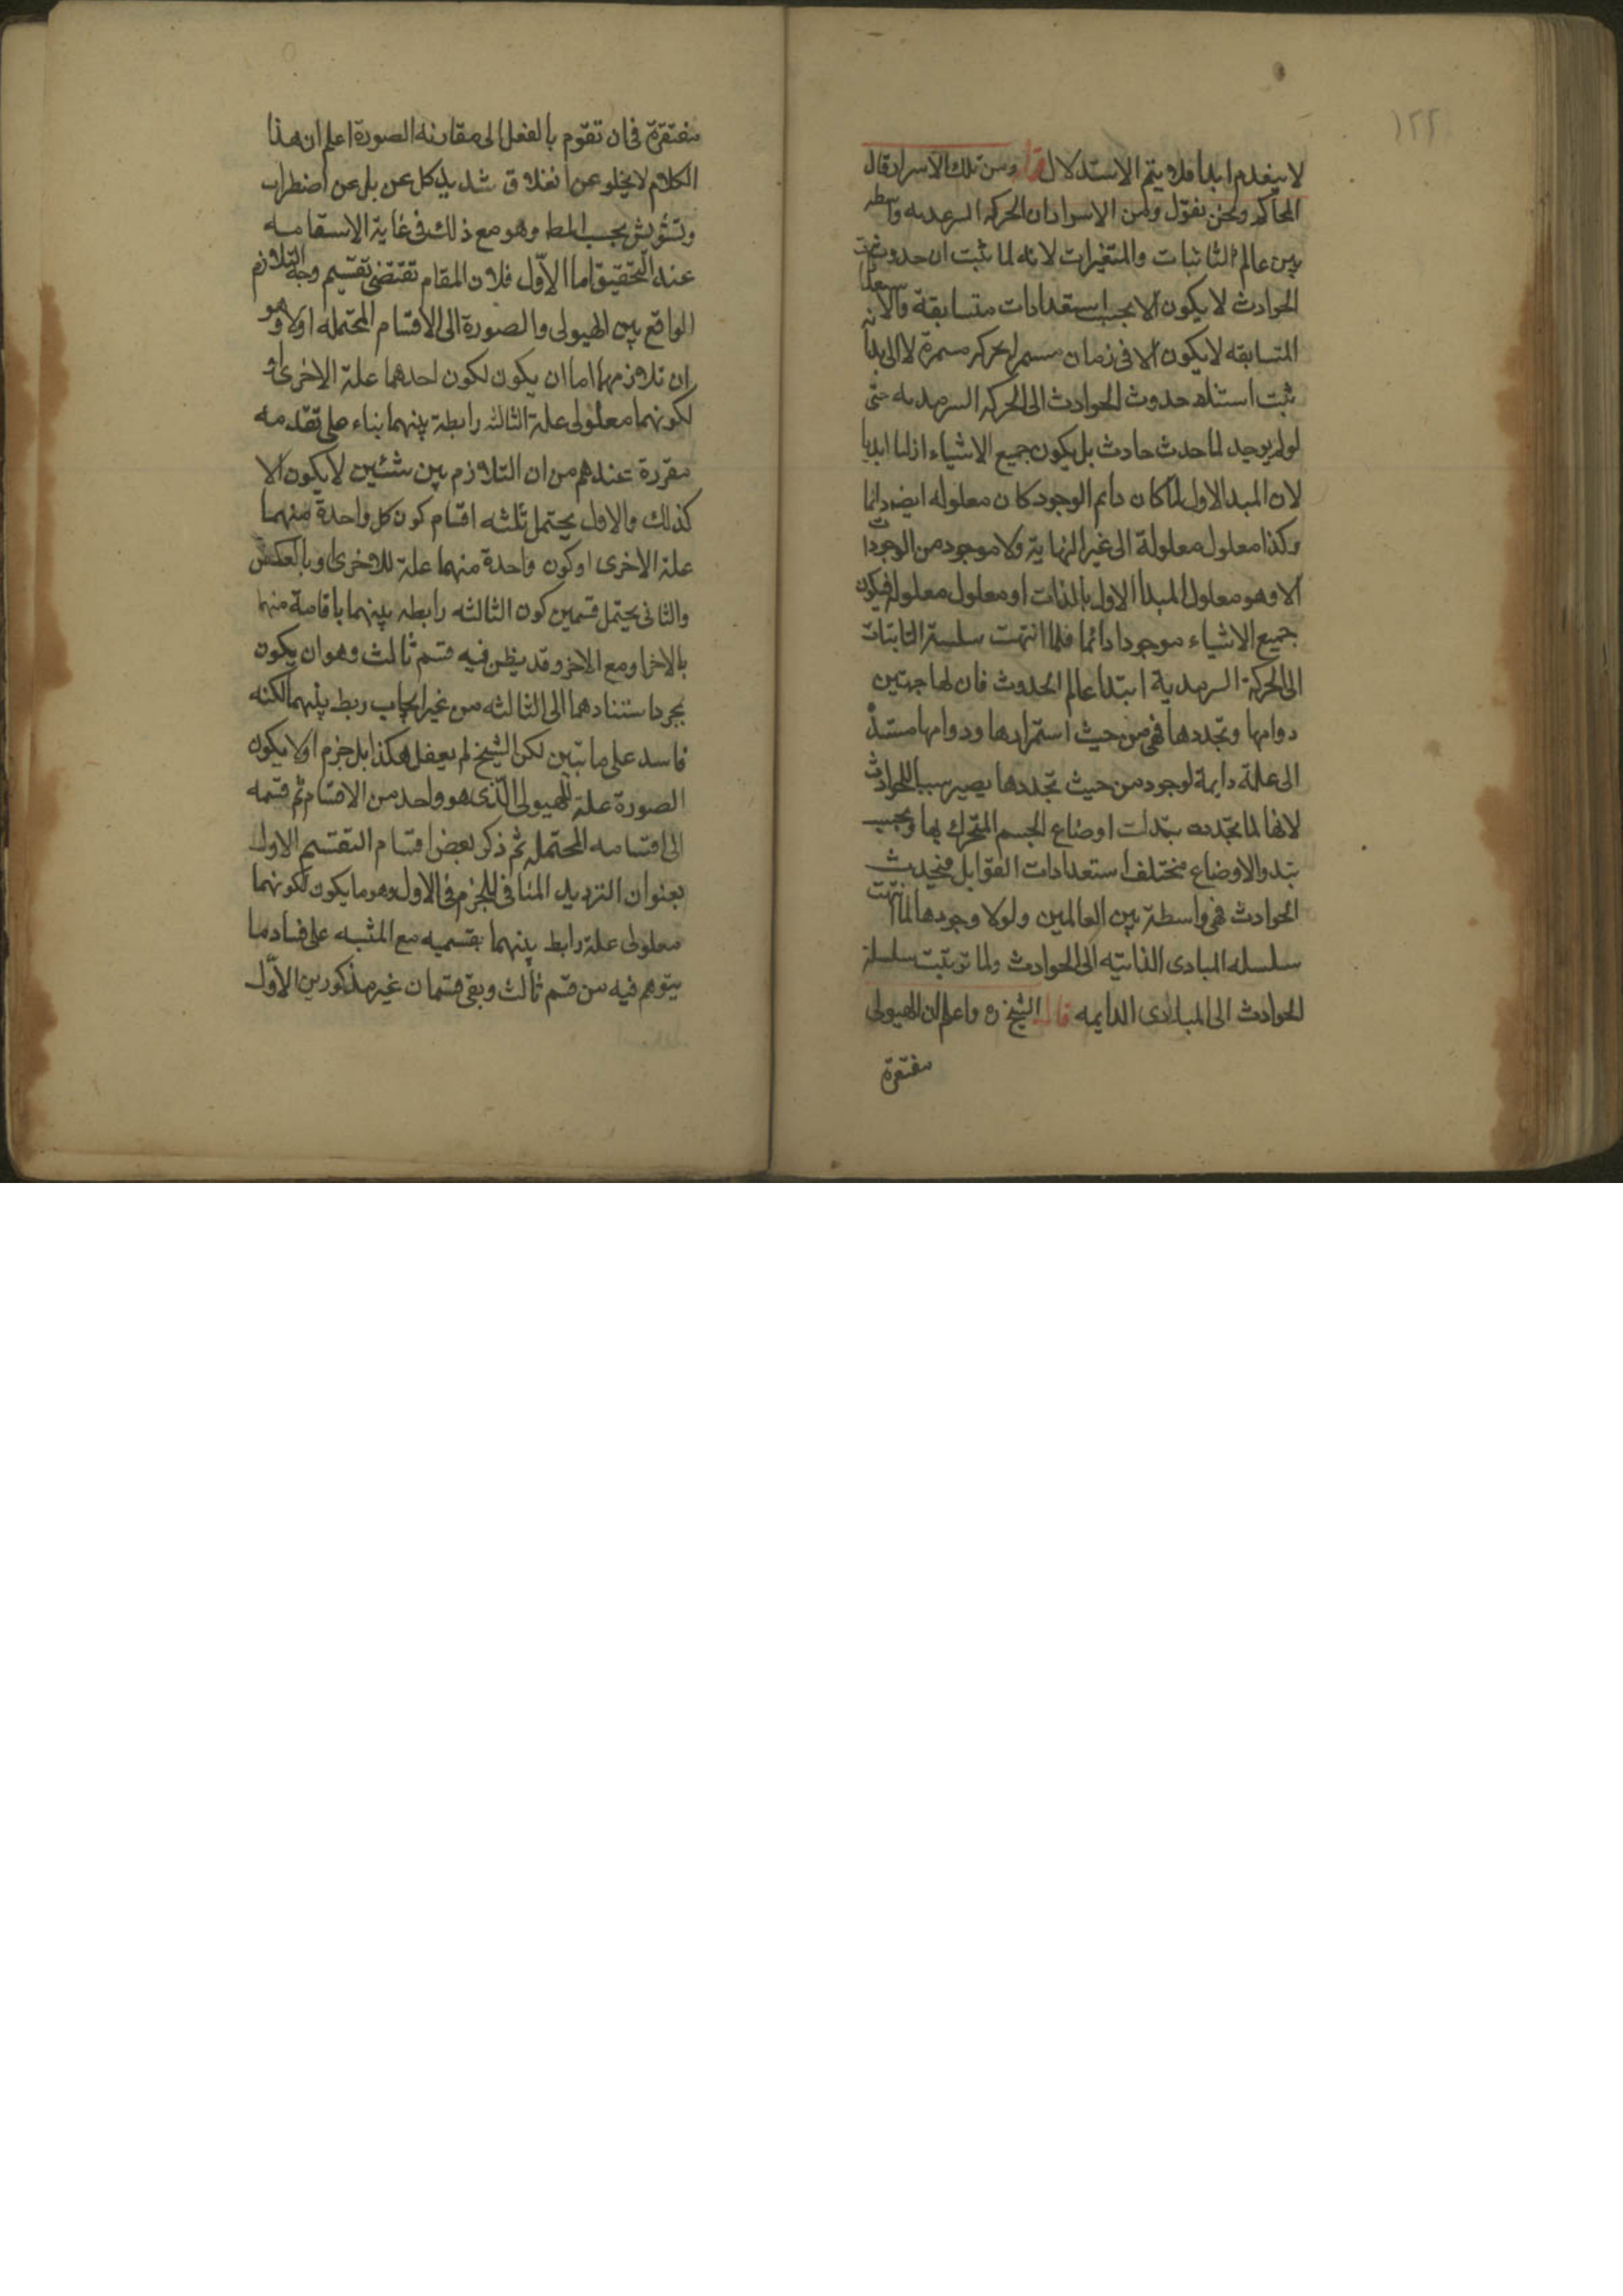 ١٢٢
لا ينعدم ابدا فلا يتم الاستدلال ومن تلك الاسرار قال
المحاكم ونحن نقول ومن الاسرار ان الحركه السرمديه واسطه
بين عالم الثابتات والمتغيرات لانه لما ثبت ان حدوث
الحوادث لا يكون الا بحسب استعدادات متسابقة والا
المتسابقه لا يكون الا فى زمان مستمر لحركه مستمرة لا الى بدا
ثبت استناد حدوث الحوادث الى الحركه السرمديه حتى
لو لم يوجد لما حدث حادث بل يكون جميع الاشياء ازليا ابديا
لان المبدا الاول لما كان دايم الوجود كان معلوله ايضا دائما
وكذا معلول معلولة الى غير النهاية ولا موجود من الموجودات
الا وهو معلول المبدا الاول بالذات او معلول معلوله فيكون
جميع الاشياء موجودا دائما فلما انتهت سلسلة الثابتات
الى الحركة السرمدية ابتدا عالم الحدوث فان لها جهتين
دوامها وتجددها فهى من حيث استمرارها ودوامها مستند
الى علة دايمة لوجود من حيث تجددها يصير سببا للحوادث
لانها لما تجددت تبدلت اوضاع الجسم المتحرك بها وبحسب
تبدل الاوضاع مختلف استعدادات القوابل فيحدث
الحوادث فهى واسطة بين العالمين ولولا وجودها لما انتهت
سلسله المبادى الذاتيه الى الحوادث ولما ترتبت سلسلة
الحوادث الى المبادى الدايمه قال الشيخ ره واعلم ان الهيولى
مفتقرة
مفتقرة فى ان تقوم بالفعل الى مقارنه الصورة اعلم ان هذا
الكلام لا يخلو عن انغلاق شديد بل عن اضطراب
وتشويش بحسب المط وهو مع ذلك فى غاية الاستقامه
عند التحقيق اما الاول فلان المقام تقتضى تقسيم وجه التلازم
الواقع بين الهيولى والصورة الى الاقسام المحتمله اولا وهو
ان تلازمهما اما ان يكون لكون احدهما علة الاخرى او
لكونهما معلولى علة الثالثه رابطة بينهما بناء على تقدمه
مقررة عندهم من ان التلازم بين شئين لا يكون الا
كذلك والاول يحتمل ثلثه اقسام كون كل واحدة منهما
علة الاخرى او كون واحدة منهما علة للاخرى او بالعكس
والثانى يحتمل قسمين كون الثالثه رابطه بينهما باقامة منهما
بالاخر او مع الاخر وقد يظن فيه قسم ثالث وهو ان يكون
بجرد استنادهما الى الثالثه من غير ايجاب ربط بينهما لكنه
فاسد على ما تبين لكن الشيخ لم يفعل هكذا بل جزم اولا بكون
الصورة علة للهيولى الذى هو واحد من الاقسام ثم قسمه
الى اقسامه المحتمله ثم ذكر بعض اقسام التقسيم الاول
بعنوان الترديد المنافى للجزم فى الاول وهو ما يكون لكونهما
معلولى علة رابط بينهما بقسميه مع المثبه على فساد ما
يتوهم فيه من قسم ثالث وبقى قسمان غير مذكورين الاول